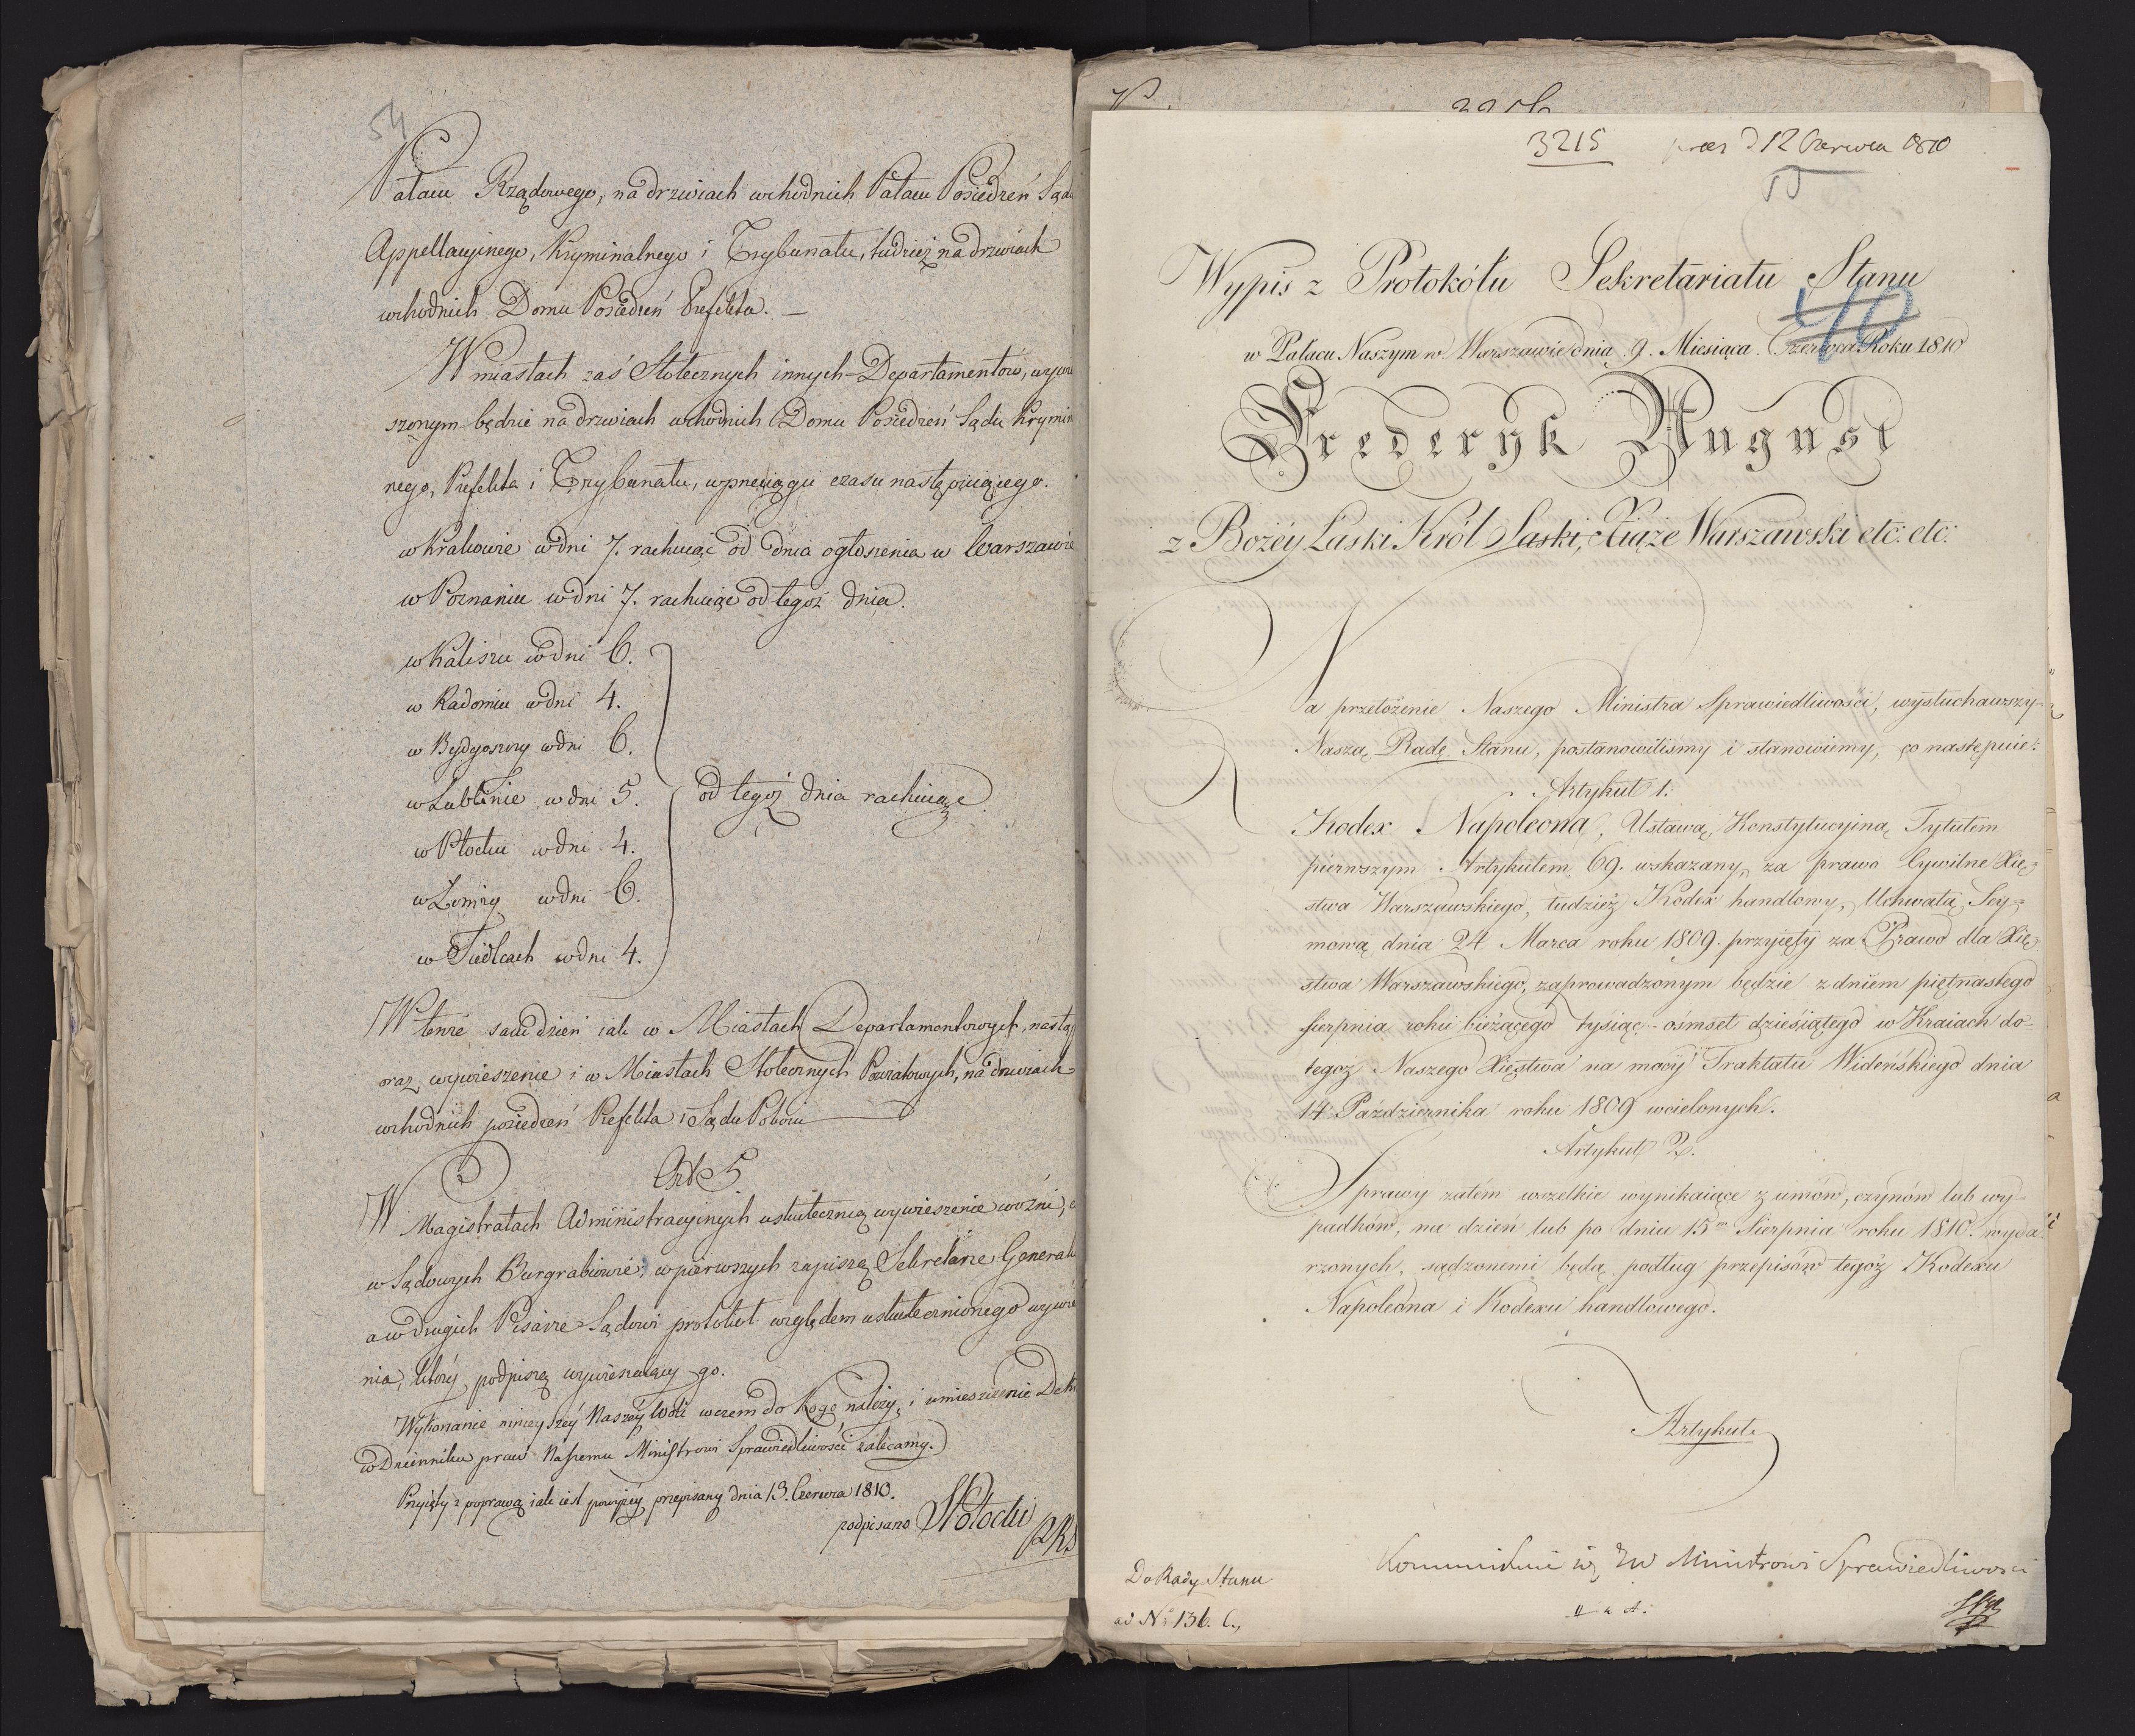 54
Pałacu Rządowego, na drzwiach wchodnich Pałacu Posiedzeń Sądu
Appellacyinego, Kryminalnego i Trybunału, tudzież na drzwiach
wchodnich Domu Posiedzeń Prefekta. —
W miastach zaś Stołecznych innych Departamentów, wywie
szonym będzie na drzwiach wchodnich Domu Posiedzeń Sądu Krymin
nego, Prefekta i Trybunału, w przeciągu czasu następuiącego.
w Krakowie w dni 7. rachuiąc od dnia ogłoszenia w Warszawie
w Poznaniu w dni 7. rachuiąc od tegoż dnia.
w Kaliszu w dni 6.
w Radomiu w dni 4.
w Bydgoszczy w dni 6.
w Lublinie w dni 5. od tegoż dnia rachuiąc
w Płocku w dni 4.
w Łomży w dni 6.
w Siedlcach w dni 4.
W tenże sam dzień iak w Miastach Departamentowych, nastąp
oraz wywieszenie i w Miastach Stołecznych Powiatowych, na drzwiach
wchodnich posiedzeń Prefekta i Sądu Pokoiu
Art 5
W Magistratach Administracyinych uskutecznią wywieszenie woźni, a
w Sądowych Burgrabiowie; w pierwszych zapiszą Sekretarze Generaln
a w drugich Pisarze Sądowi protokuł względem uskutecznionego wywie
nia, który podpiszą wywieszaiący go.
Wykonanie ninieyszéy Naszéy Woli w czem do kogo należy, i umieszczenie Dek
w Dzienniku praw Naszemu Ministrowi Sprawiedliwości zalecamy.
Przyięty z poprawą iak iest powyżéy przepisany dnia 13. Czerwca 1810.
podpisano Potocki
PRS
3215 praes d 12 Czerwca 1810
55
Wypis z Protokółu Sekretariatu Stanu
40
w Pałacu Naszym w Warszawie dnia 9. Miesiąca Czerwca Roku 1810
Frederyk August
z Bożéy Łaski Król Saski, Xiąże Warszawski etc: etc:
Na przełożenie Naszego Ministra Sprawiedliwości, wysłuchawszy
Naszą Radę Stanu, postanowiliśmy i stanowiemy, co następuie:
Artykuł 1.
Kodex Napoleona, Ustawą Konstytucyiną Tytułem
pierwszym Artykułem 69. wskazany, za prawo Cywilne Xię=
stwa Warszawskiego, tudzież Kodex handlowy, Uchwałą Sey=
mową dnia 24 Marca roku 1809. przyięty za Prawo dla Xię=
stwa Warszawskiego, zaprowadzonym będzie z dniem piętnastego
Sierpnia roku bieżącego tysiąc ośmset dziesiątego w Kraiach do=
tegoż Naszego Xięstwa na mocy Traktatu Wideńskiego dnia
14 Października roku 1809 wcielonych.
Artykuł 2.
Sprawy zatém wszelkie wynikaiące z umów, czynów lub wy=
padków, na dzień lub po dniu 15m Sierpnia roku 1810. wyda=
rzonych, sądzonemi będą podług przepisów tegoż Kodexu
Napoleona i Kodexu handlowego.
Artykuł
Kommunikuie się JW Ministrowi Sprawiedliwości
Do Rady Stanu
ad No 136. C.